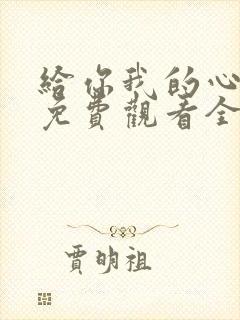 給你我的心
免費觀看全
賈明祖